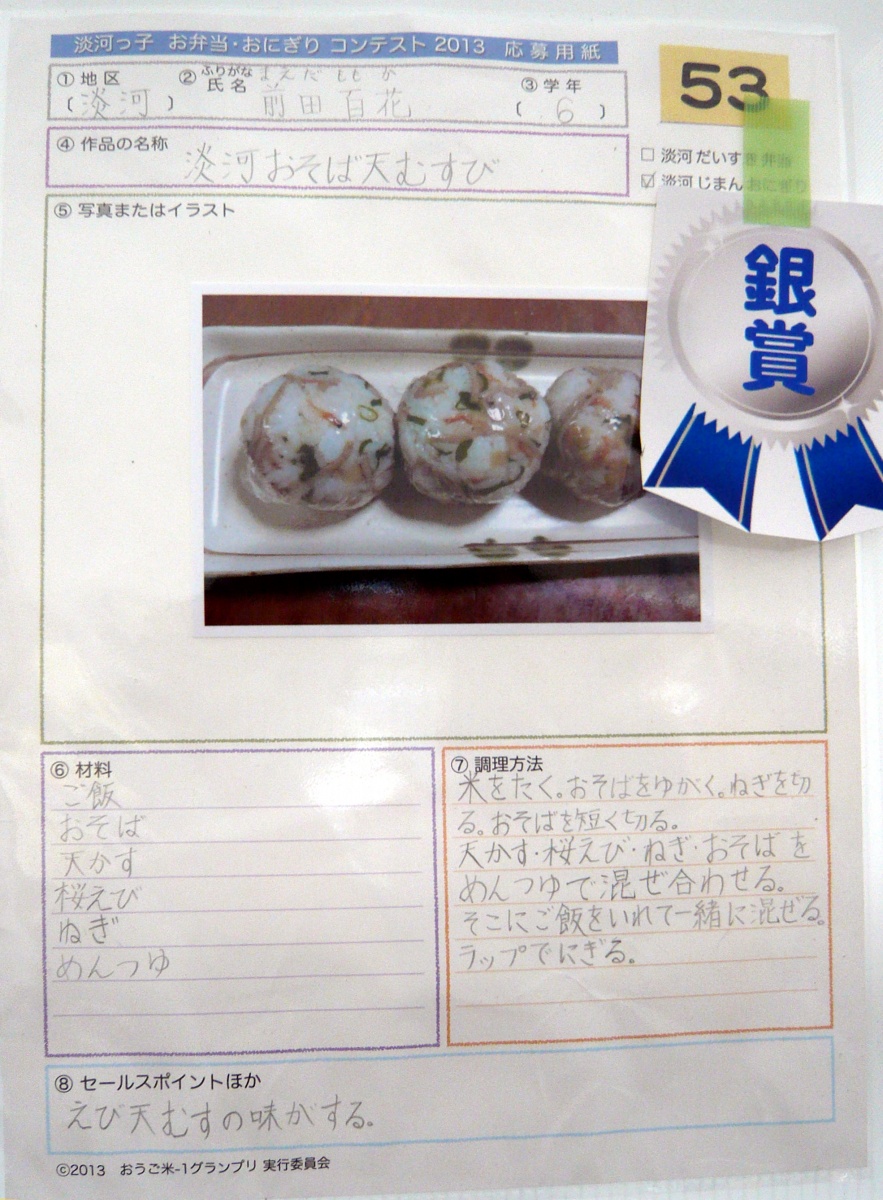 淡河っ子 お弁当・おにぎり コンテスト 2013 応募用紙
53
①地区
(淡河)
②ふりがな まえだ ももか
氏名 前田 百花
③学年
(6)
④作品の名称
淡河おそば天むすび
□ 淡河だいすき弁当
☑ 淡河じまんおにぎり
⑤写真またはイラスト
銀賞
⑥材料
ご飯
おそば
天かす
桜えび
ねぎ
めんつゆ
⑦調理方法
米をたく。おそばをゆがく。ねぎを切
る。おそばを短く切る。
天かす・桜えび・ねぎ・おそばを
めんつゆで混ぜ合わせる。
そこにご飯をいれて一緒に混ぜる。
ラップでにぎる。
⑧セールスポイントほか
えび天むすの味がする。
©2013 おうご米-1グランプリ 実行委員会